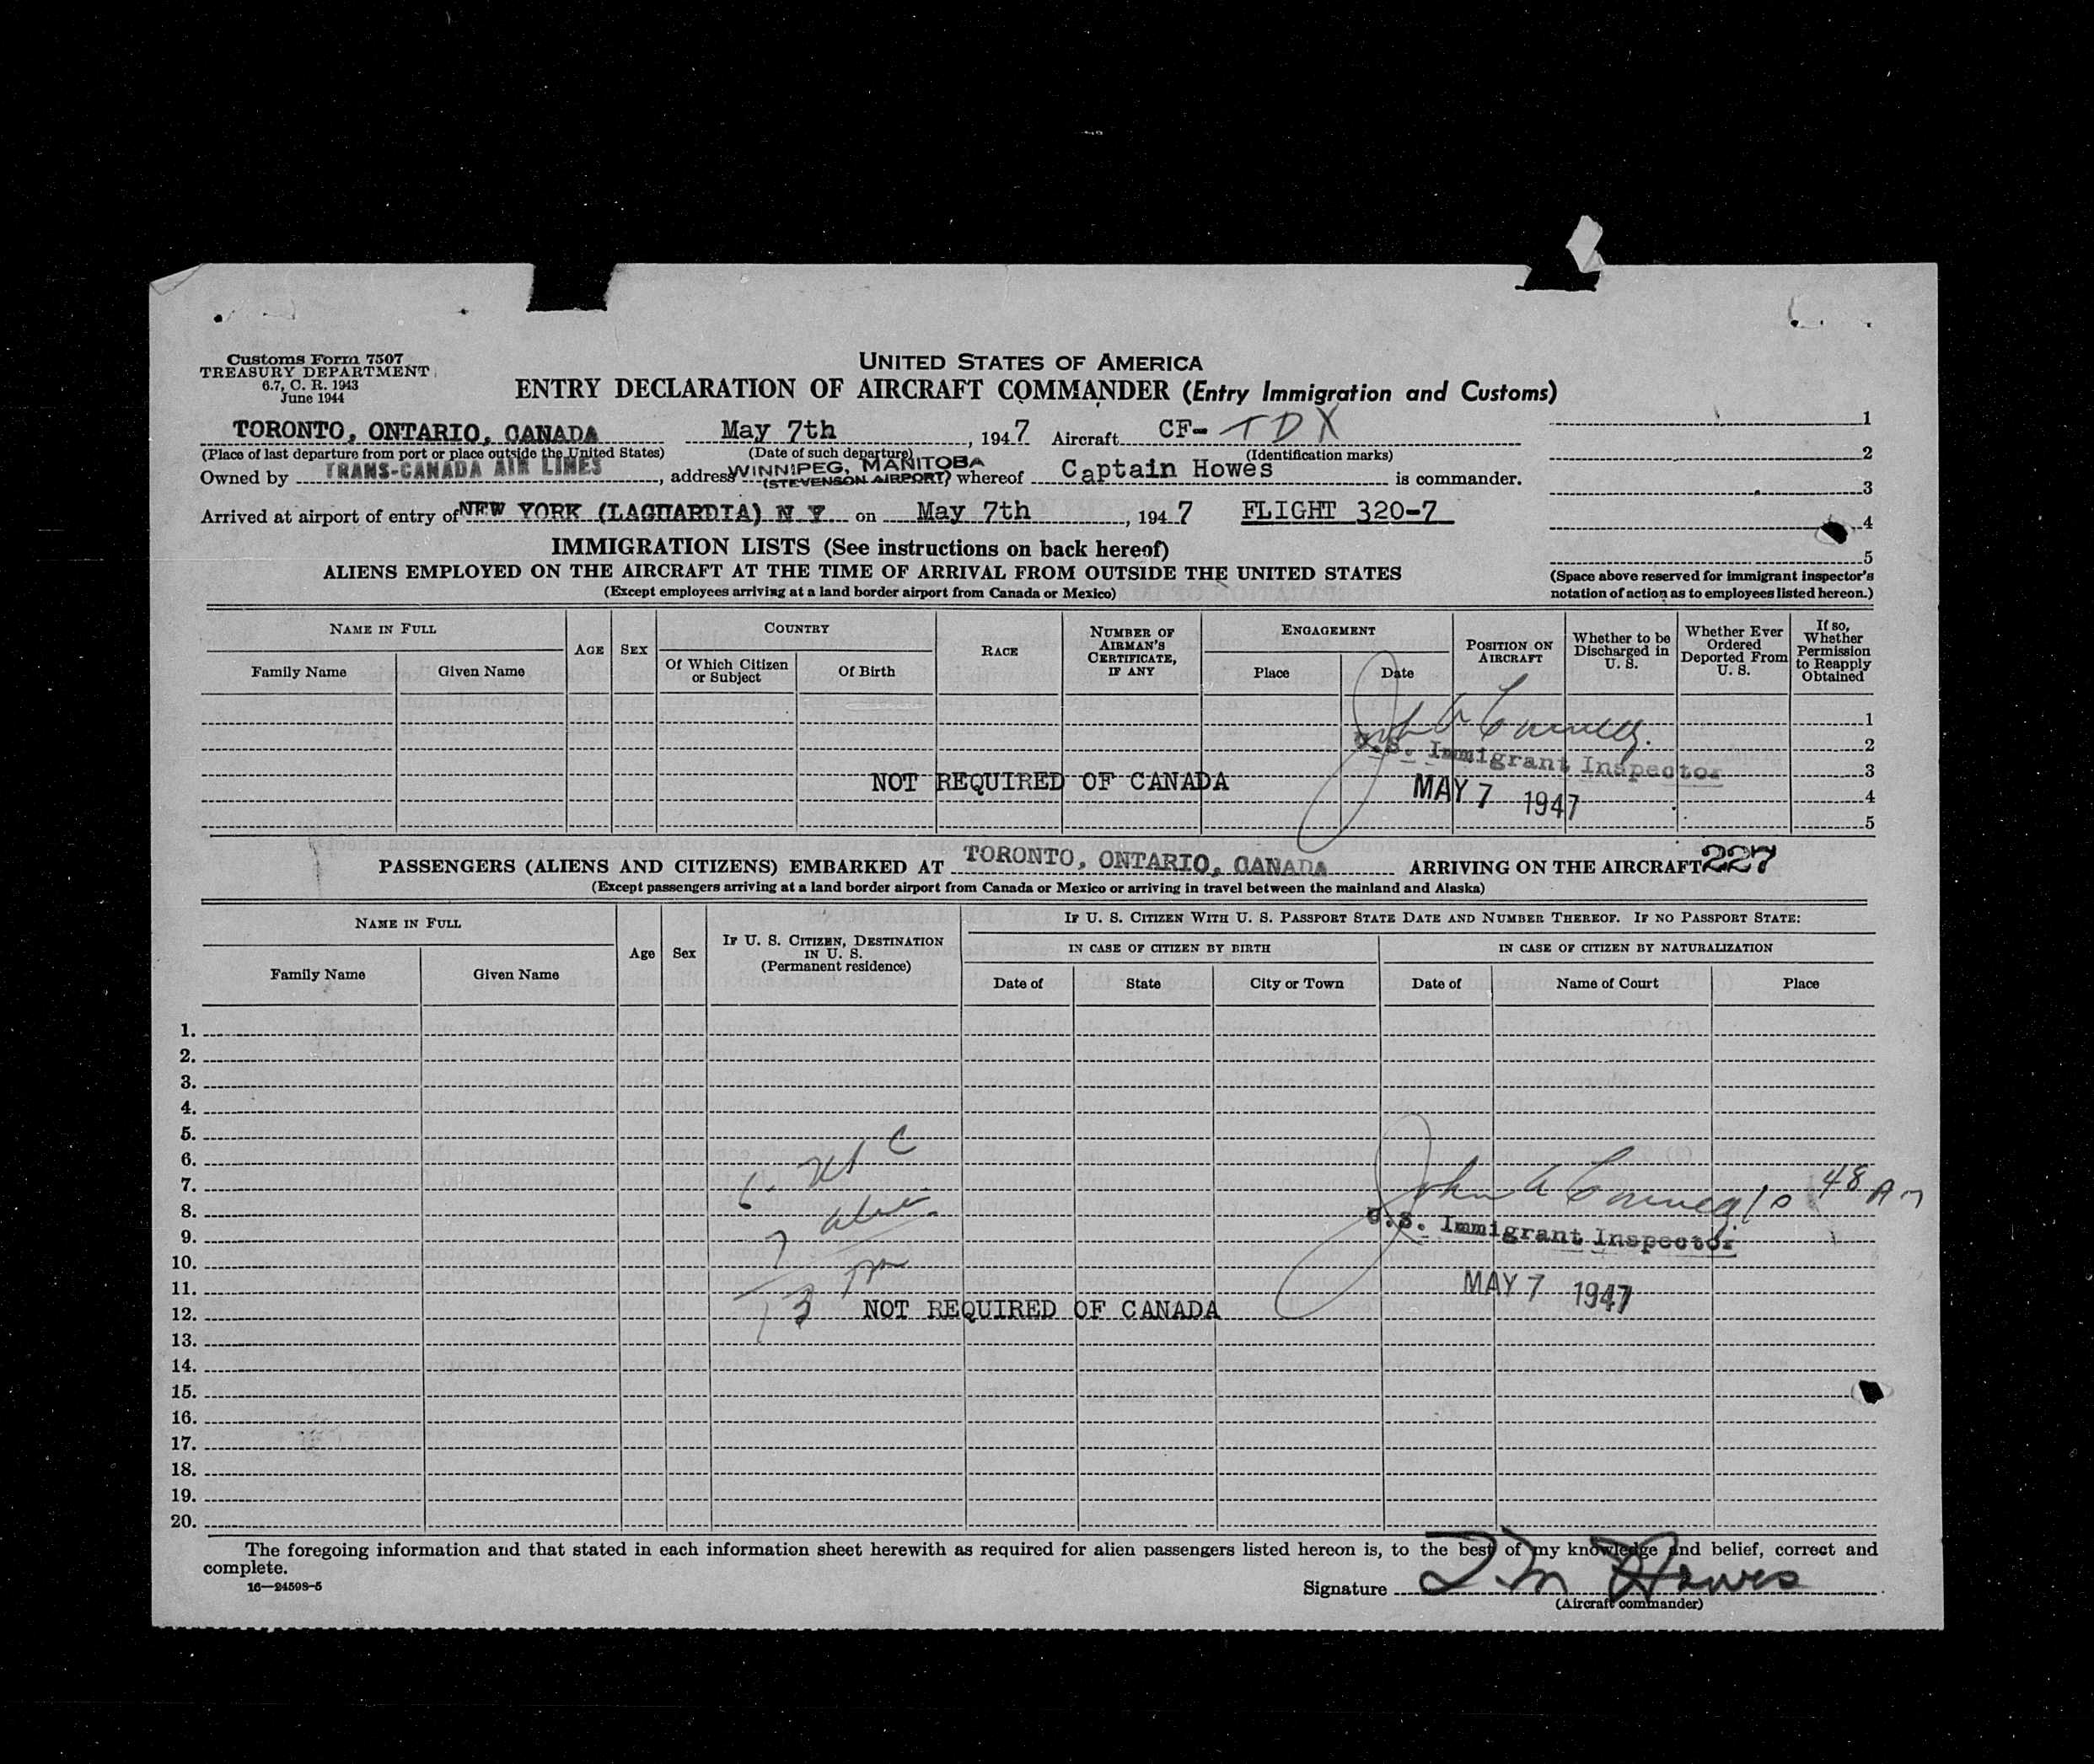 Customs Form 7507
TREASURY DEPARTMENT
6.7, C. R. 1943
June 1944
UNITED STATES OF AMERICA
ENTRY DECLARATION OF AIRCRAFT COMMANDER (Entry Immigration and Customs)
TORONTO, ONTARIO, CANADA May 7th, 1947 Aircraft CF-TDX 1
(Place of last departure from port or place outside the United States) (Date of such departure) (Identification marks) 2
Owned by TRANS-CANADA AIR LINES, address WINNIPEG, MANITOBA (STEVENSON AIRPORT) whereof Captain Howes is commander. 3
Arrived at airport of entry of NEW YORK (LAGUARDIA) N Y on May 7th, 1947 FLIGHT 320-7 4
5
IMMIGRATION LISTS (See instructions on back hereof)
ALIENS EMPLOYED ON THE AIRCRAFT AT THE TIME OF ARRIVAL FROM OUTSIDE THE UNITED STATES
(Except employees arriving at a land border airport from Canada or Mexico)
(Space above reserved for immigrant inspector's
notation of action as to employees listed hereon.)
NAME IN FULL
Family Name Given Name
AGE SEX
COUNTRY
Of Which Citizen or Subject Of Birth
RACE
NUMBER OF AIRMAN'S CERTIFICATE, IF ANY
ENGAGEMENT
Place Date
POSITION ON AIRCRAFT
Whether to be Discharged in U. S.
Whether Ever Ordered Deported From U. S.
If so, Whether Permission to Reapply Obtained
1
2
U.S. Immigrant Inspector
3
NOT REQUIRED OF CANADA MAY 7 1947
4
5
PASSENGERS (ALIENS AND CITIZENS) EMBARKED AT TORONTO, ONTARIO, CANADA ARRIVING ON THE AIRCRAFT 227
(Except passengers arriving at a land border airport from Canada or Mexico or arriving in travel between the mainland and Alaska)
NAME IN FULL
Family Name Given Name
Age Sex
IF U. S. CITIZEN, DESTINATION IN U. S.
(Permanent residence)
IF U. S. CITIZEN WITH U. S. PASSPORT STATE DATE AND NUMBER THEREOF. IF NO PASSPORT STATE:
IN CASE OF CITIZEN BY BIRTH IN CASE OF CITIZEN BY NATURALIZATION
Date of State City or Town Date of Name of Court Place
1.
2.
3.
4.
5.
6.
7. 6 John A 10 48 AM
8.
U.S. Immigrant Inspector
9. 7
10.
11. MAY 7 1947
12. 13 NOT REQUIRED OF CANADA
13.
14.
15.
16.
17.
18.
19.
20.
The foregoing information and that stated in each information sheet herewith as required for alien passengers listed hereon is, to the best of my knowledge and belief, correct and
complete.
16—24598-5
Signature Howes
(Aircraft commander)